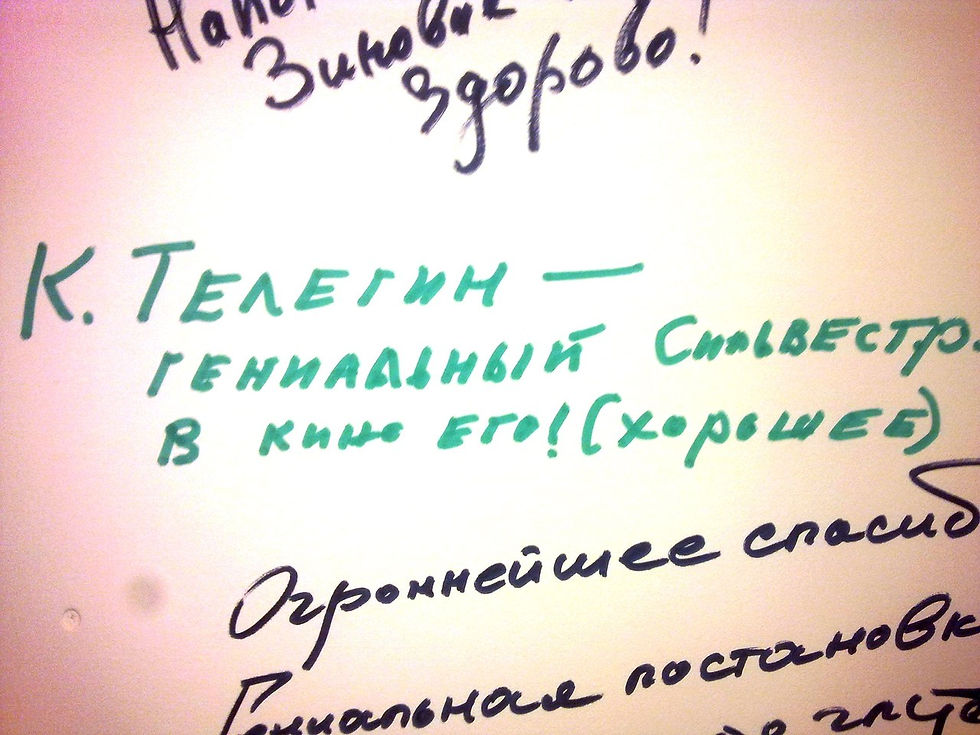 Зиновия
здорово!
К. ТЕЛЕГИН —
ГЕНИАЛЬНЫЙ СИЛЬВЕСТР.
В КИНО ЕГО! (ХОРОШЕЕ)
Огромнейшее спасиб
Гениальная постановк